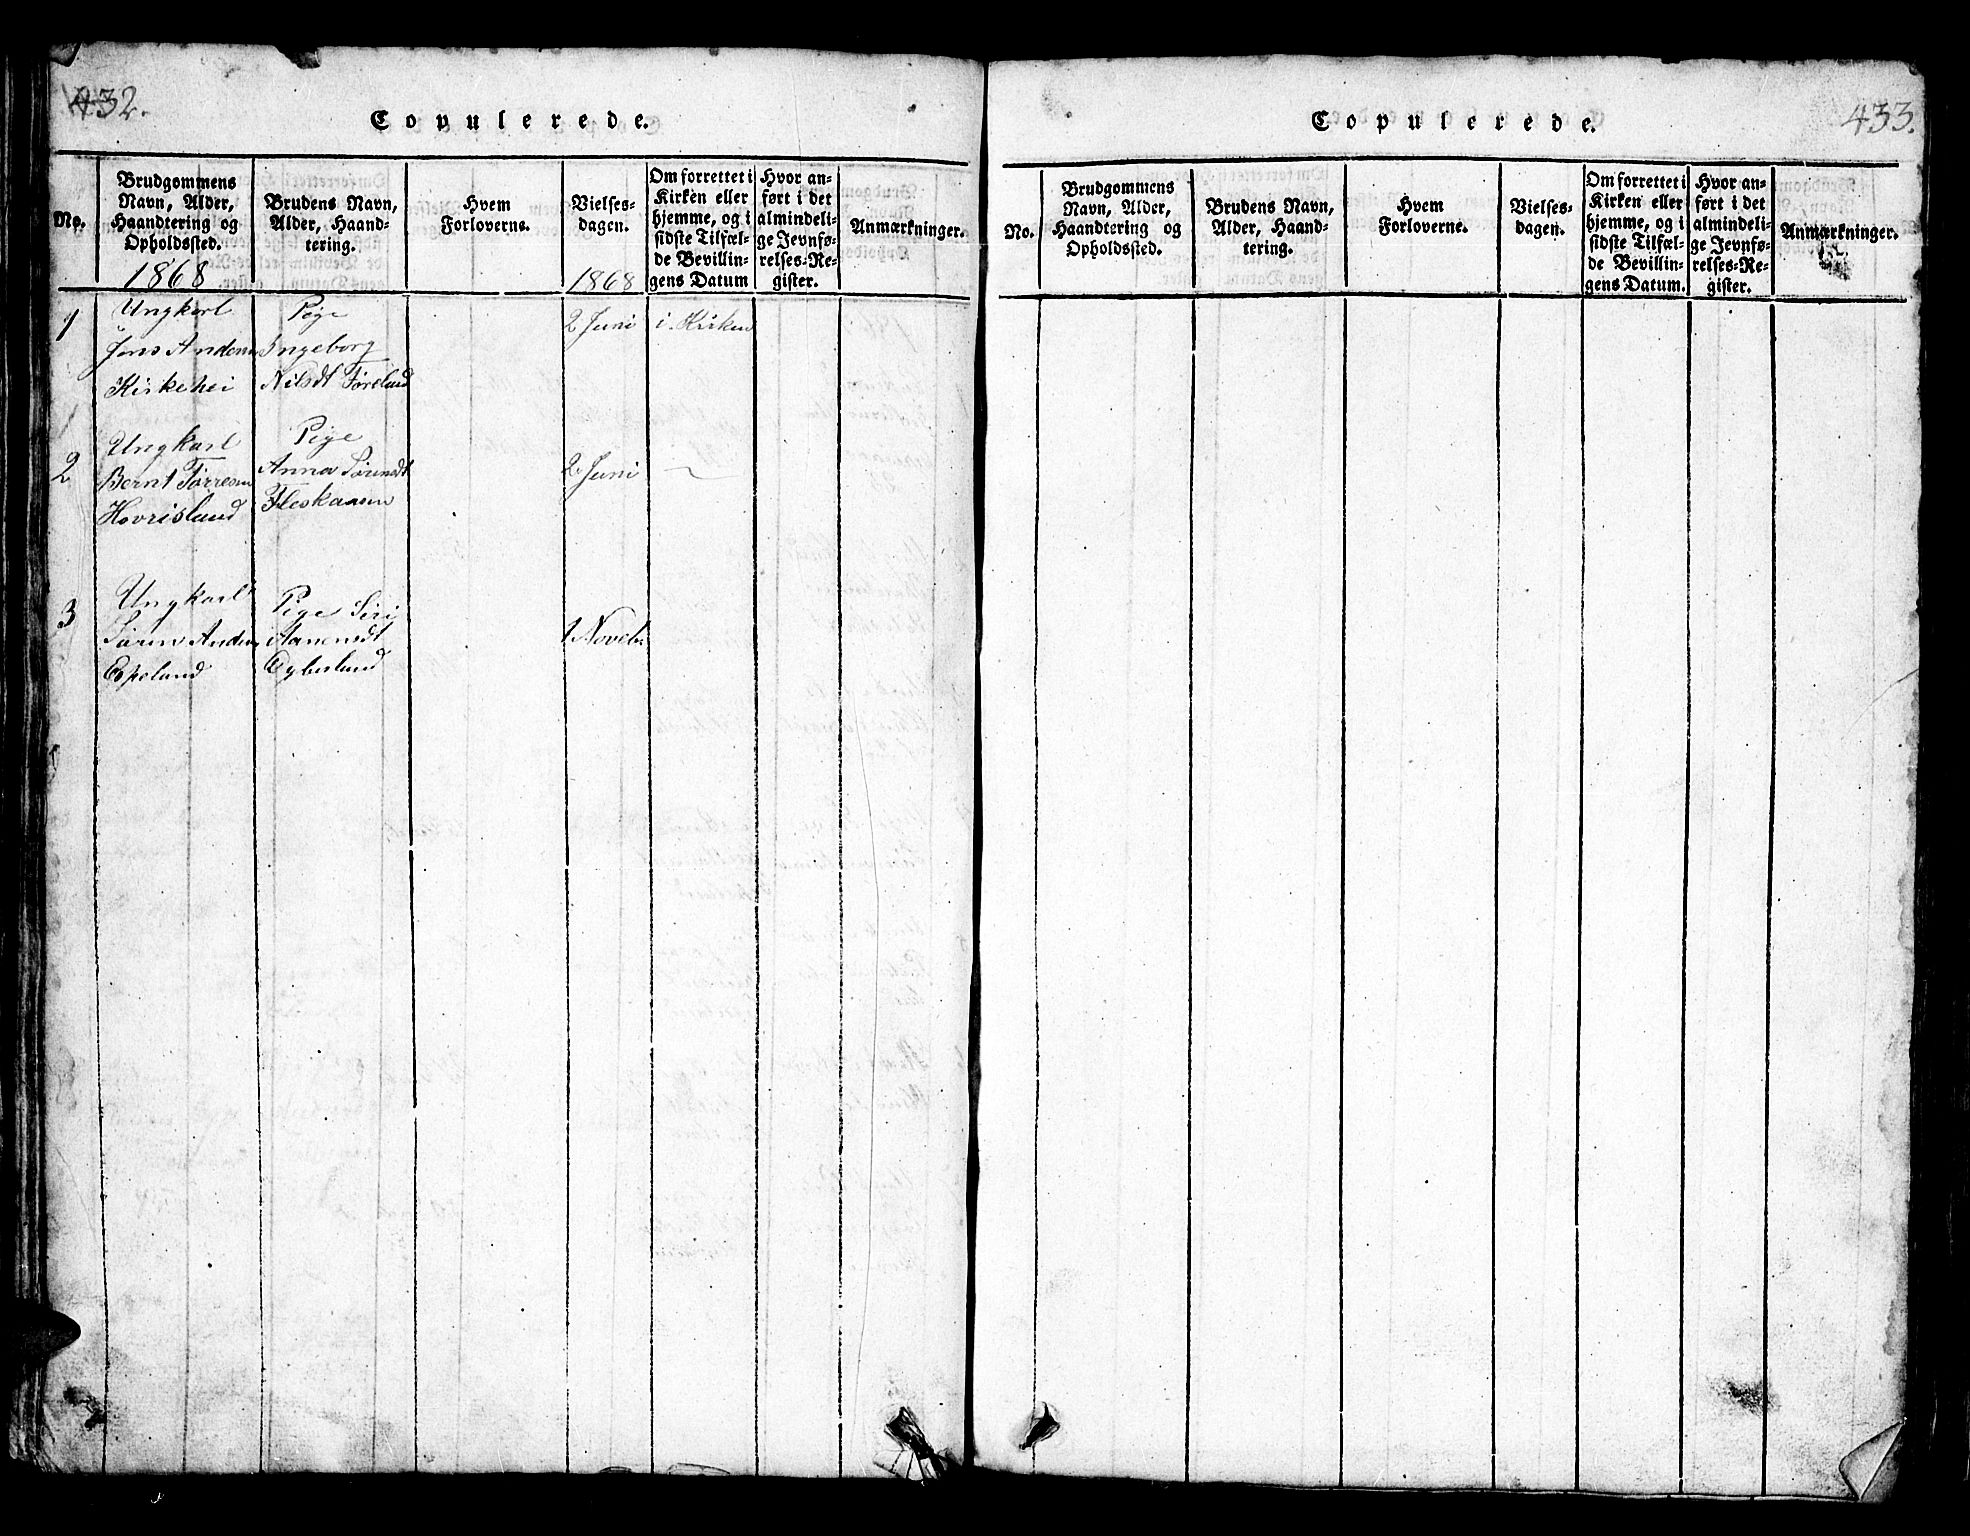 432.
Copulerede.
No.
Brudgommens
Navn, Alder,
Haandtering og
Opholdssted.
1868
Brudens Navn,
Alder, Haand-
tering.
Hvem
Forloverne.
Vielses-
dagen.
1868
Om forrettet i
Kirken eller
hjemme, og i
sidste Tilfæl-
de Bevillin-
gens Datum
Hvor an-
ført i det
almindeli-
ge Jevnfø-
relses-Re-
gister.
Anmærkninger.
1
Ungkarl
Jens Andersen
Kirkehei
Pige
Ingeborg
Nilsdt Føreland
2 Juni
i Kirken
2
Ungkarl
Bernt Tørresen
Hovrisland
Pige
Anna Sørensdt
Fleskaasen
2 Juni
3
Ungkarl
Søren Anders
Epeland
Pige Siri
Aanensdt
Øyberland
1 Novebr
433.
Copulerede.
No.
Brudgommens
Navn, Alder,
Haandtering og
Opholdssted.
Brudens Navn,
Alder, Haand-
tering.
Hvem
Forloverne.
Vielses-
dagen.
Om forrettet i
Kirken eller
hjemme, og i
sidste Tilfæl-
de Bevillin-
gens Datum.
Hvor an-
ført i det
almindeli-
ge Jevnfø-
relses-Re-
gister.
Anmærkninger.